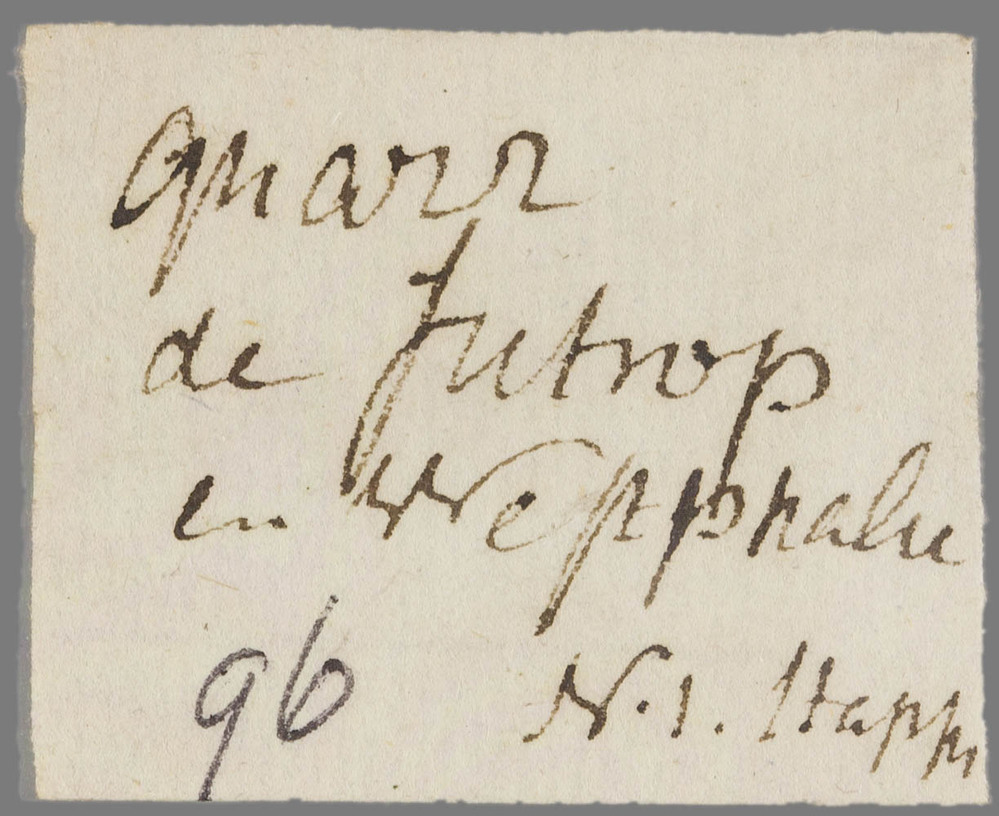 quarz
de futrop
en Westphalie
96 N. 1. Happ